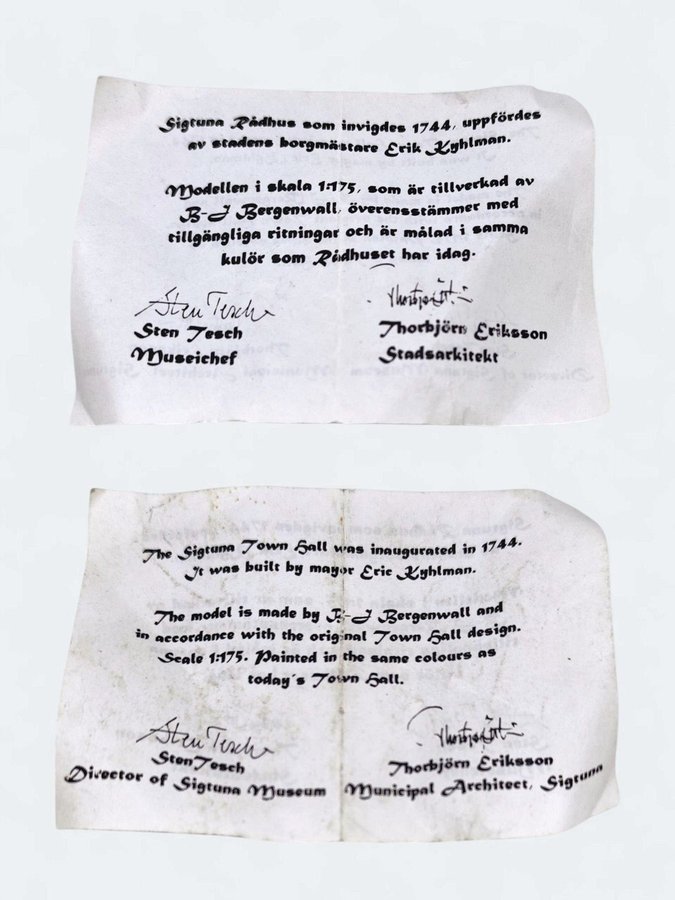 Sigtuna Rådhus som invigdes 1744, uppfördes
av stadens borgmästare Erik Kyhlman.
Modellen i skala 1:175, som är tillverkad av
B-J Bergenwall, överensstämmer med
tillgängliga ritningar och är målad i samma
kulör som Rådhuset har idag.
Sten Tesch
Sten Tesch
Museichef
Thorbjörn Eriksson
Stadsarkitekt
The Sigtuna Town Hall was inaugurated in 1744.
It was built by mayor Eric Kyhlman.
The model is made by B-J Bergenwall and
in accordance with the original Town Hall design.
Scale 1:175. Painted in the same colours as
today´s Town Hall.
Sten Tesch
Sten Tesch
Director of Sigtuna Museum
Thorbjörn Eriksson
Municipal Architect, Sigtuna